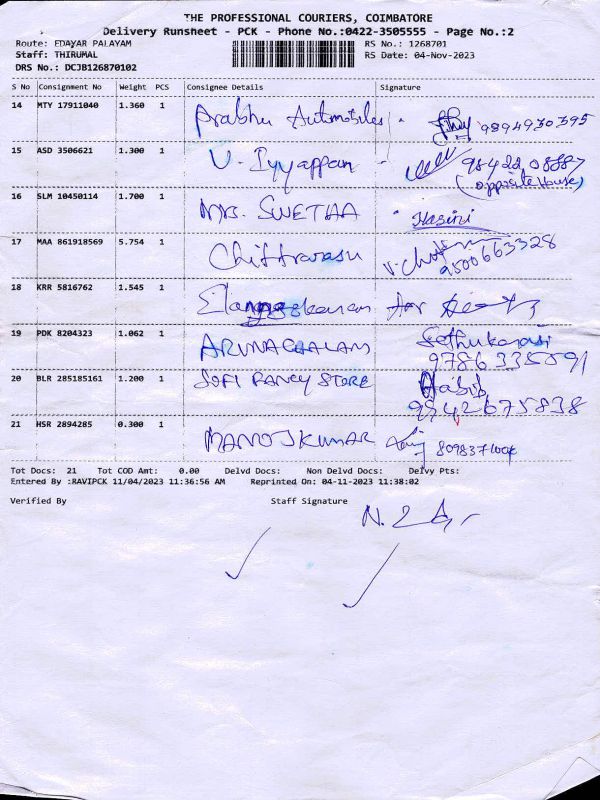 THE PROFESSIONAL COURIERS, COIMBATORE
Delivery Runsheet - PCK - Phone No.:0422-3505555 - Page No.:2
Route: EDAYAR PALAYAM RS No.: 1268701
Staff: THIRUMAL RS Date: 04-Nov-2023
DRS No.: DCJB126870102
S No Consignment No Weight PCS Consignee Details Signature
14 MTY 17911040 1.360 1 Prabhu Automobiles 9894930395
15 ASD 3506621 1.300 1 V. Iyyappan 98422,08887
(opposite House)
16 SLM 10450114 1.700 1 Mrs. SWETHA Hasini
17 MAA 861918569 5.754 1 Chittrarasu
9500663328
18 KRR 5816762 1.545 1
19 PDK 8204323 1.062 1 ARUNACHALAM Sethukarasi
9786335891
20 BLR 285185161 1.200 1 SOFI FANCY STORE Habib
9942675838
21 HSR 2894285 0.300 1 MANOJKUMAR
Tot Docs: 21 Tot COD Amt: 0.00 Delvd Docs: Non Delvd Docs: Delvy Pts:
Entered By :RAVIPCK 11/04/2023 11:36:56 AM Reprinted On: 04-11-2023 11:38:02
Verified By Staff Signature